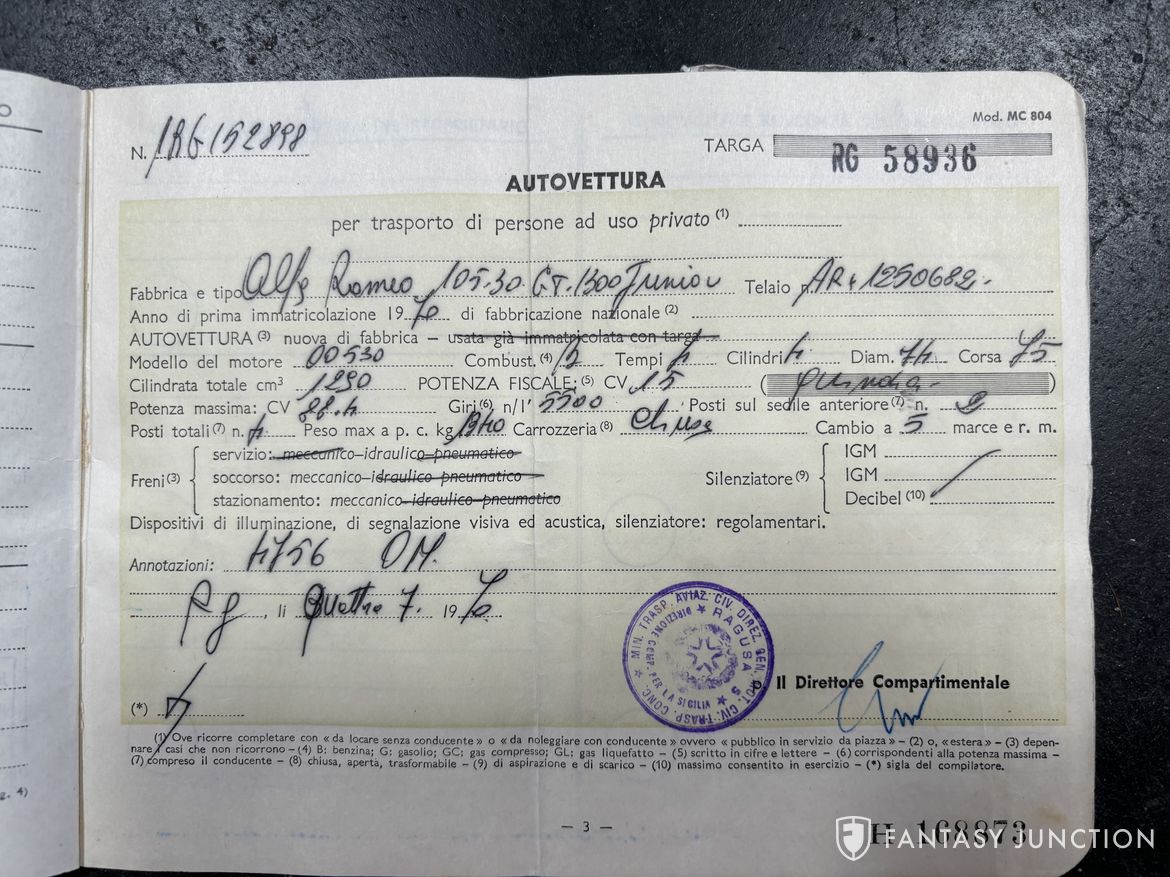 Mod. MC 804
N. 1RG152898
TARGA RG 58936
AUTOVETTURA
per trasporto di persone ad uso privato (1)
Fabbrica e tipo Alfa Romeo 105-30 GT. 1300 Junior Telaio n. AR * 1250682.
Anno di prima immatricolazione 1970 di fabbricazione nazionale (2)
AUTOVETTURA (3) nuova di fabbrica – usata già immatricolata con targa
Modello del motore 00530 Combust. (4) B Tempi 4 Cilindri 4 Diam. 74 Corsa 75
Cilindrata totale cm³ 1290 POTENZA FISCALE: (5) CV 15 (quindici)
Potenza massima: CV 88.4 Giri (6) n/1' 5500 Posti sul sedile anteriore (7) n. 2
Posti totali (7) n. 4 Peso max a p. c. kg 1340 Carrozzeria (8) Chiusa Cambio a 5 marce e r. m.
Freni (3)
servizio: meccanico-idraulico-pneumatico
soccorso: meccanico-idraulico pneumatico
stazionamento: meccanico-idraulico-pneumatico
Silenziatore (9)
IGM
IGM
Decibel (10)
Dispositivi di illuminazione, di segnalazione visiva ed acustica, silenziatore: regolamentari.
Annotazioni: 4756 OM.
Rg, li Quattro 7. 1970
MIN. TRASP. AVIAZ. CIV. DIREZ. GEN. MOT. CIV. TRASP. CONC.
DIREZIONE COMP. PER LA SICILIA
RAGUSA 5
Il Direttore Compartimentale
(*)
(1) Ove ricorre completare con « da locare senza conducente » o « da noleggiare con conducente » ovvero « pubblico in servizio da piazza » – (2) o, « estera » – (3) depen-
nare i casi che non ricorrono – (4) B: benzina; G: gasolio; GC: gas compresso; GL: gas liquefatto – (5) scritto in cifre e lettere – (6) corrispondenti alla potenza massima –
(7) compreso il conducente – (8) chiusa, aperta, trasformabile – (9) di aspirazione e di scarico – (10) massimo consentito in esercizio – (*) sigla del compilatore.
– 3 –
H 168873
FANTASY JUNCTION